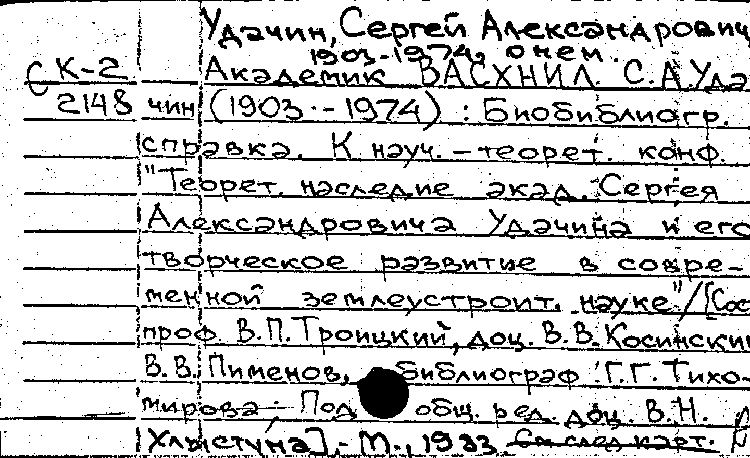 Удачин, Сергей Александрович
1903-1974, о нем.
СК-2 Академик ВАСХНИЛ С.А.Уда
2148 чин (1903.-1974) : Биобиблиогр.
справка. К науч.-теорет. конф.
"Теорет. наследие акад. Сергея
Александровича Удачина и его
творческое развитие в совре-
менной землеустроит. науке"/[Сос
проф. В.П.Троицкий, доц. В.В.Косински
В.В.Пименов, библиограф Г.Г.Тихо-
мирова; Под общ. ред. доц. В.Н.
Хлыстуна].- М., 1983 См след карт.